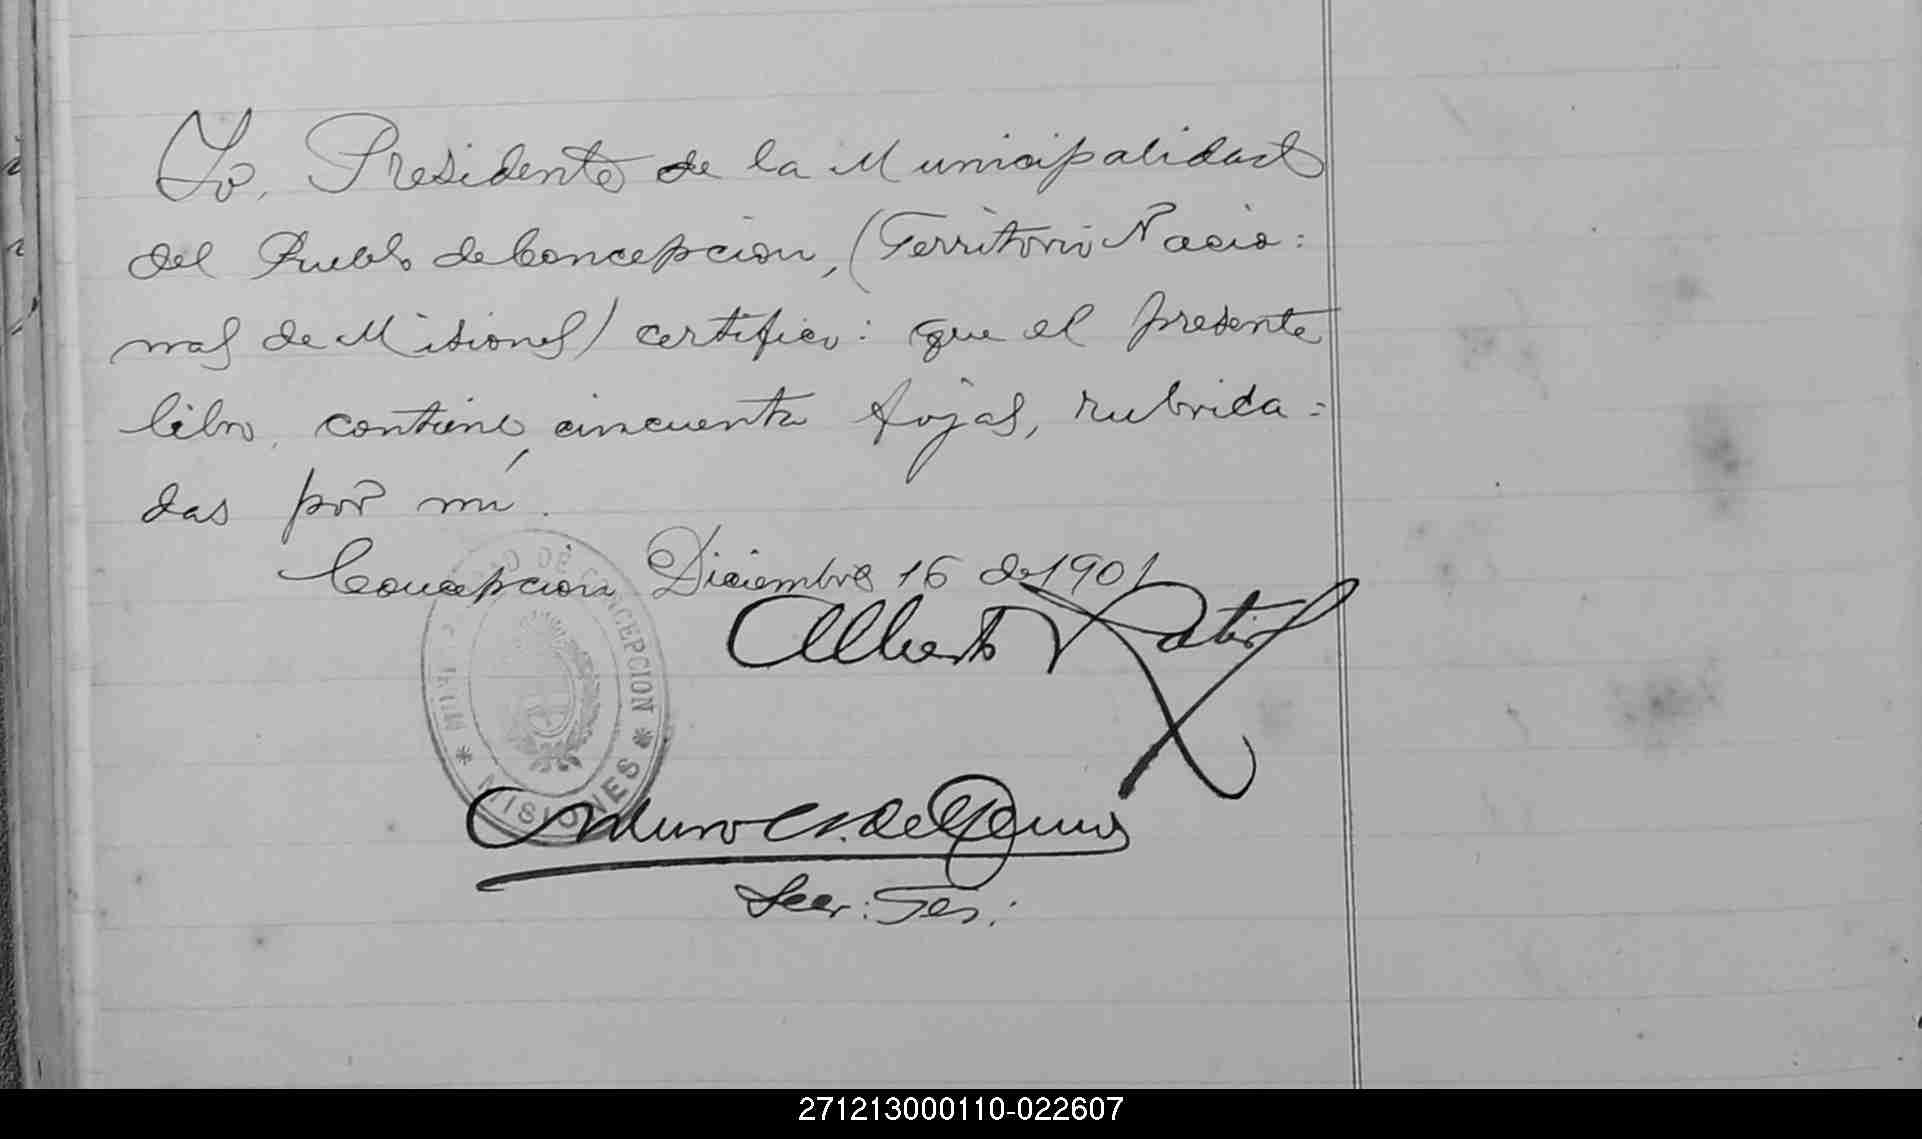 Yo, Presidente de la Municipalidad
del Pueblo de Concepcion, (Territorio Nacio=
nal de Misiones) certifico: que el presente
libro, contiene, cincuenta fojas, rubrica=
das por mí.
Concepcion Diciembre 16 de 1901
Alberto
DE CONCEPCION * MISIONES *
Arturo de
Secr: Tes:
271213000110-022607